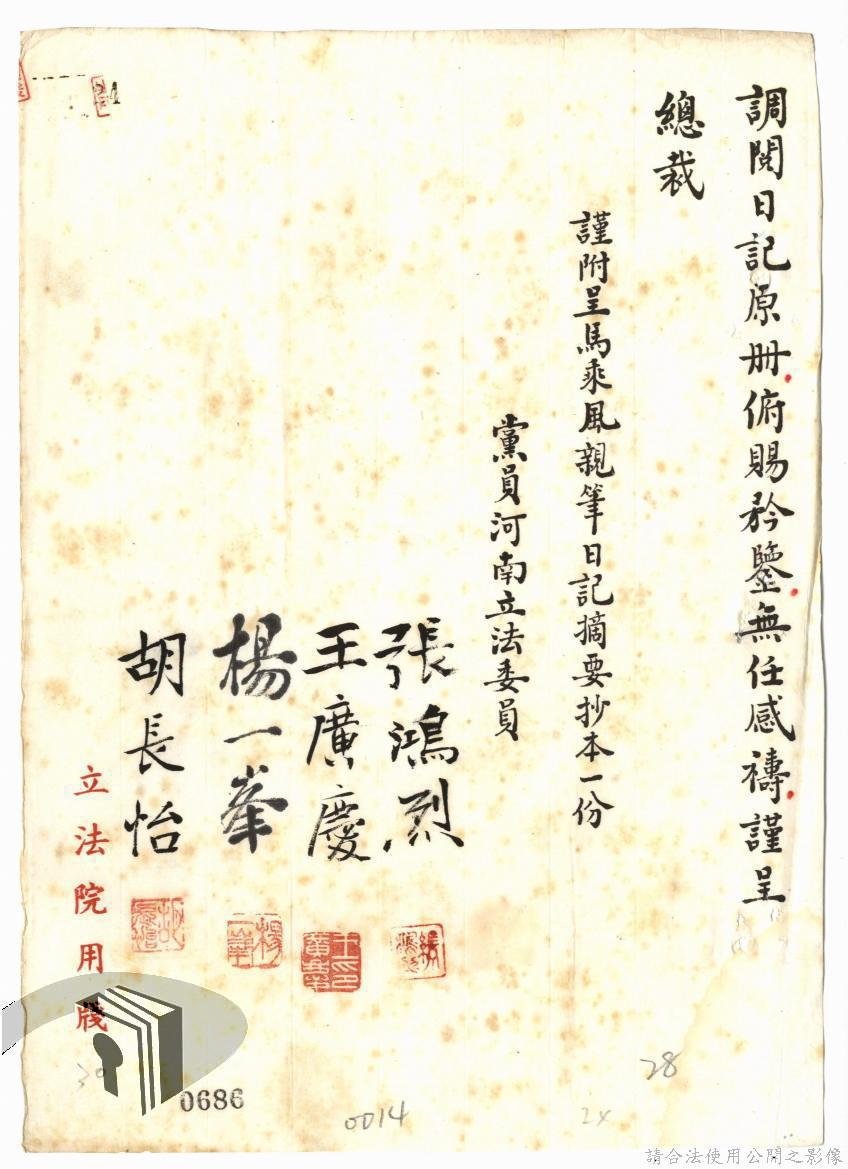 調閱日記原冊俯賜矜鑒無任感禱謹呈
總裁
謹附呈馬乘風親筆日記摘要抄本一份
黨員河南立法委員
張鴻烈
王廣慶
楊一峯
胡長怡
立法院用牋
28
0014
0686
請合法使用公開之影像